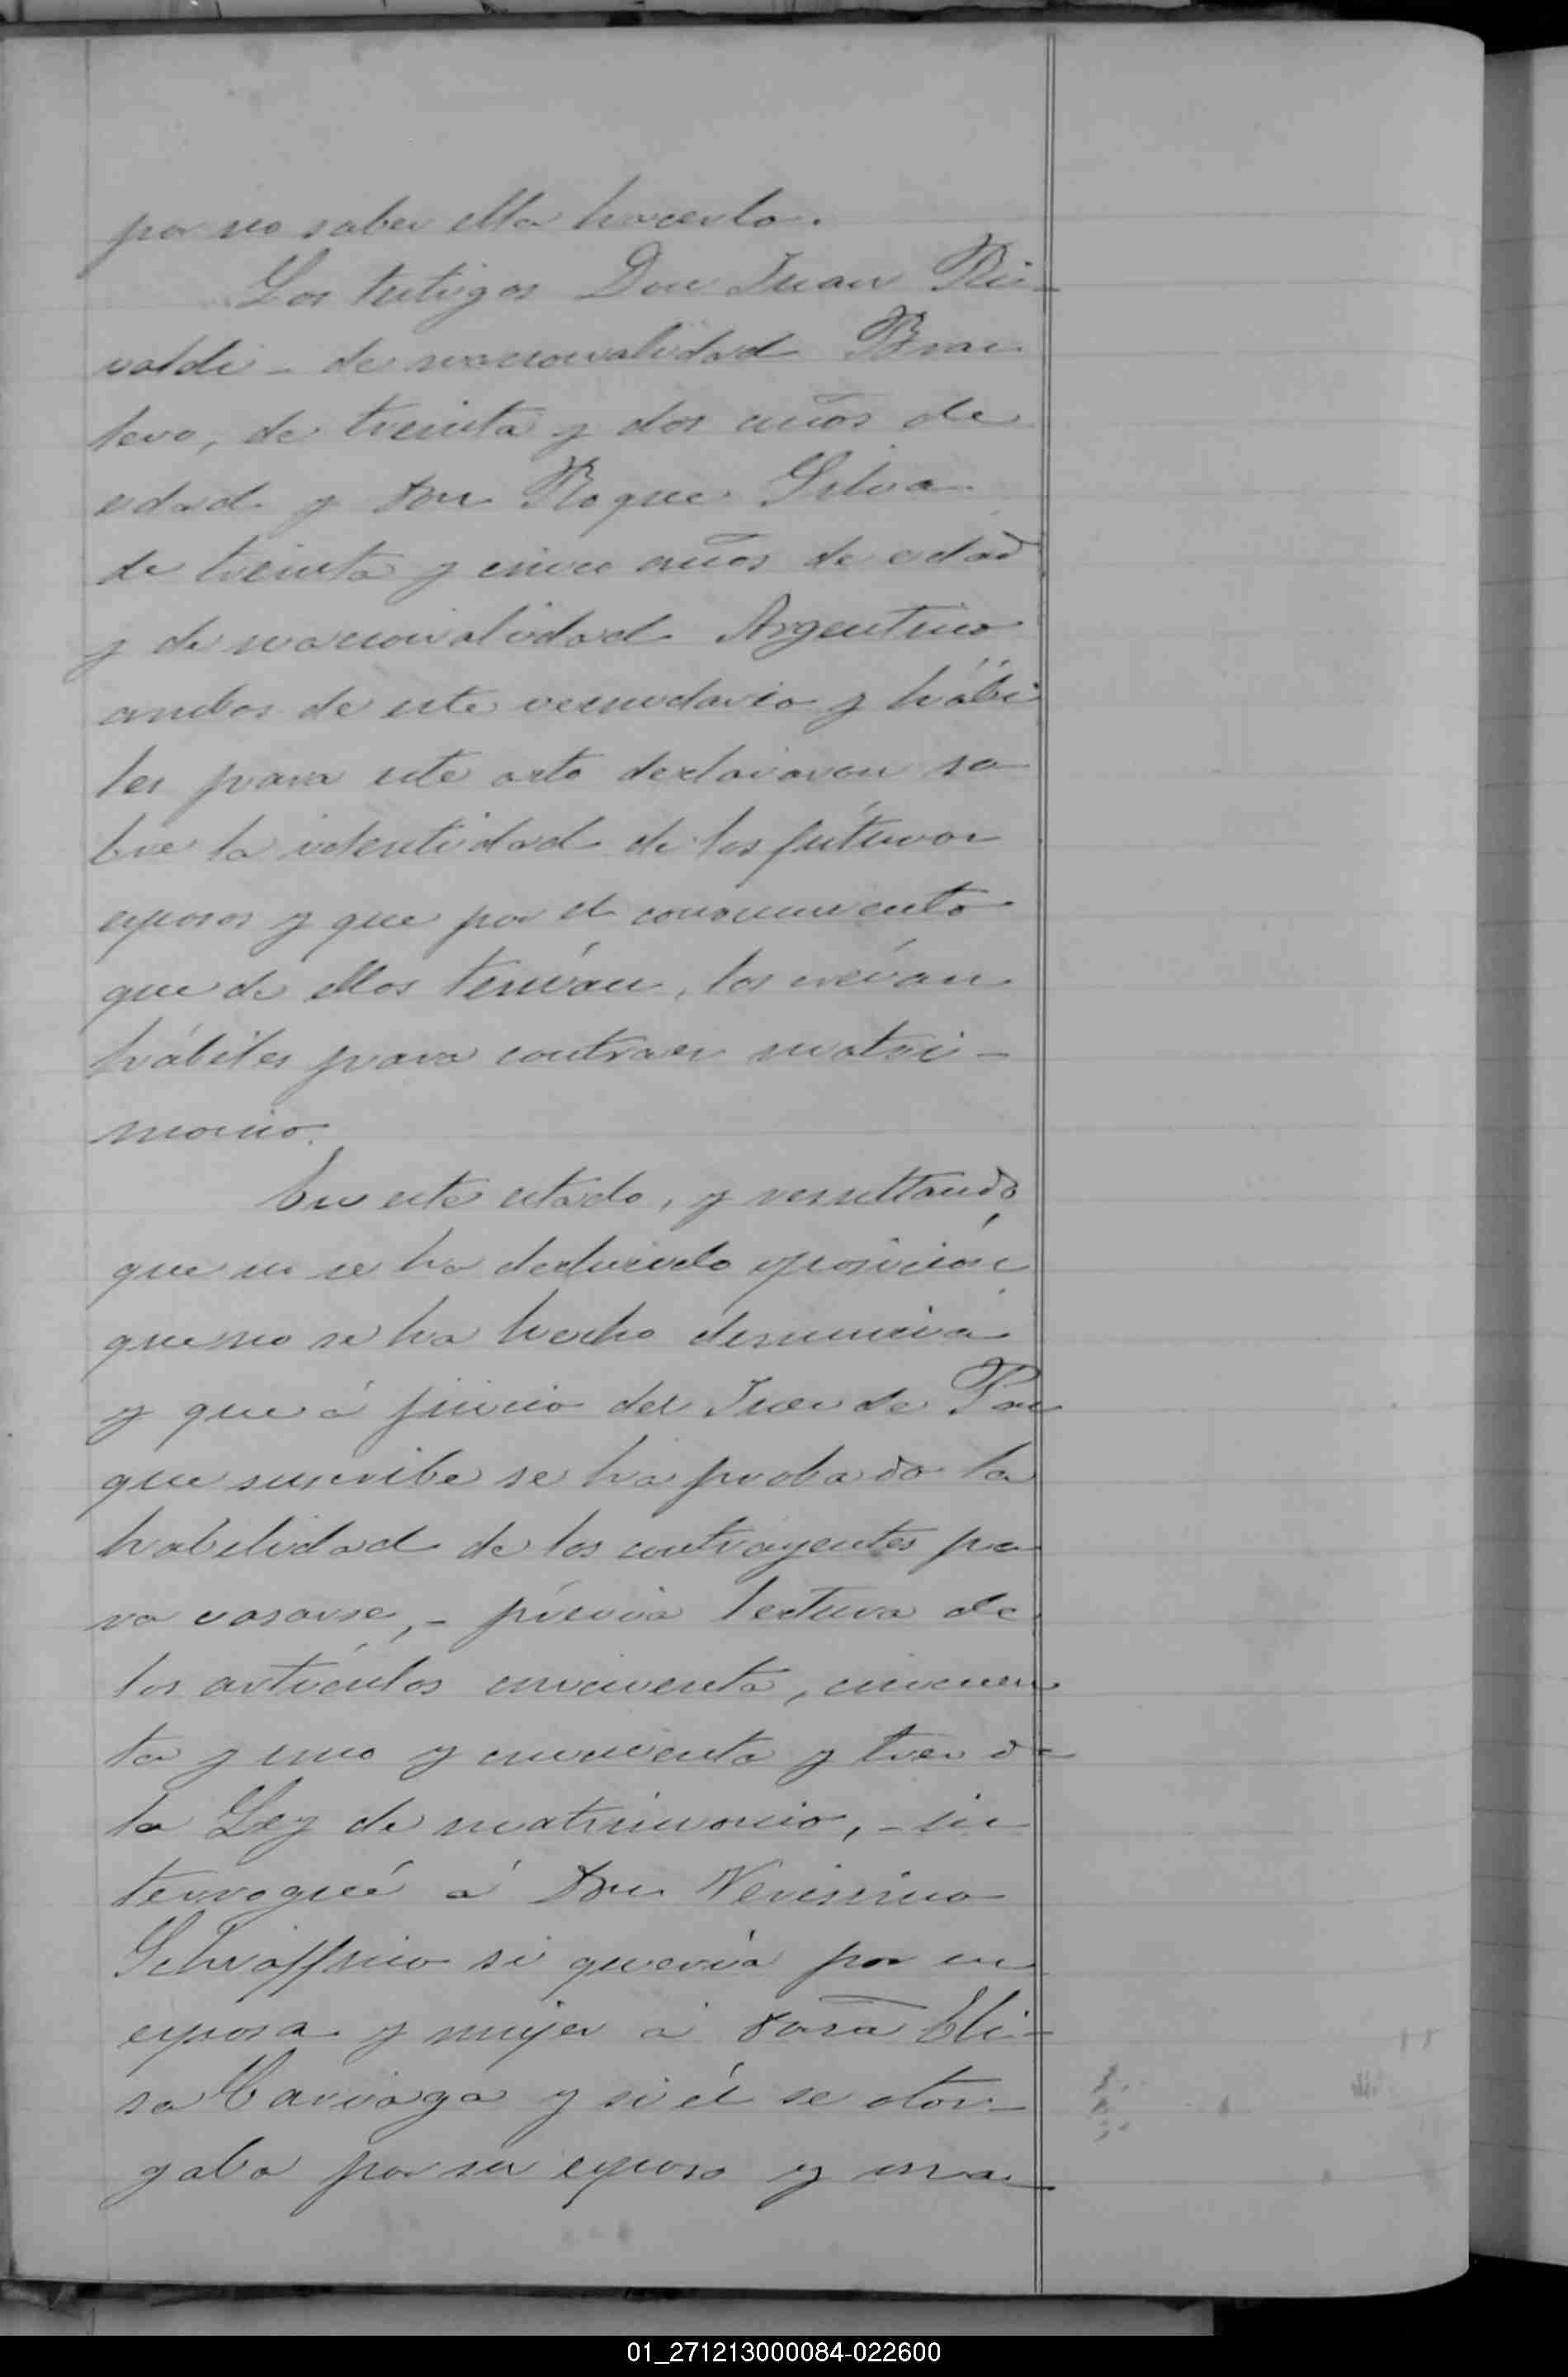 por no saber ella hacerlo.
Los testigos Don Juan Ri-
valdi - de nacionalidad Brasi
lero, de treinta y dos años de
edad y Don Roque Silva
de treinta y cinco años de edad
y de nacionalidad Argentino
ambos de este vecindario y hábi
les para este acto declararon so
bre la identidad de los futuros
esposos y que por el conocimiento
que de ellos tenían, los creían
hábiles para contraer matri-
monio.
En este estado, y resultando,
que no se ha deducido oposición
que no se ha hecho denuncia
y que á juicio del Juez de Paz
que suscribe se ha probado la
habilidad de los contrayentes pa
ra casarse, - prévia lectura de
los artículos cincuenta, cincuen
ta y uno y cincuenta y tres de
la Ley de matrimonio, - in
terrogué á Don Verissimo
Schiaffino si quería por su
esposa y mujer á Doña Eli-
sa Carriaga y si él se otor-
gaba por su esposo y ma
01_271213000084-022600